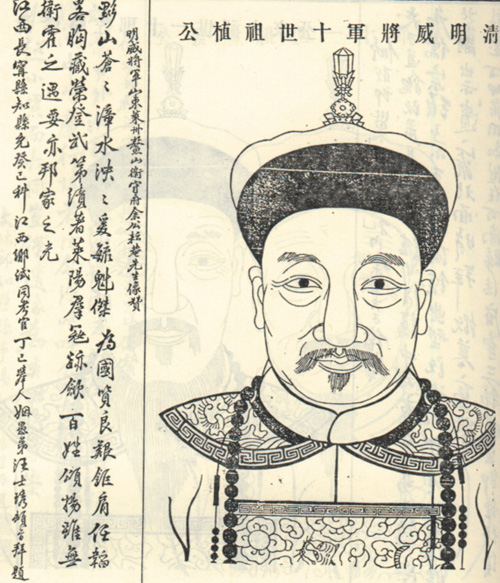 清明威將軍十世祖植公
明威將軍山東萊州鰲山衛守府余公菴先生像贊
黟山蒼〻漳水泱〻爰毓魁傑為國賢良艱鉅肩任韜
畧胸藏榮登武第績著萊陽羣寇跡歛百姓頌揚雖無
衛霍之遇要亦邦家之光
江西長寧縣知縣充癸巳科江西鄉試同考官丁巳舉人姻愚弟汪士琇頓首拜題